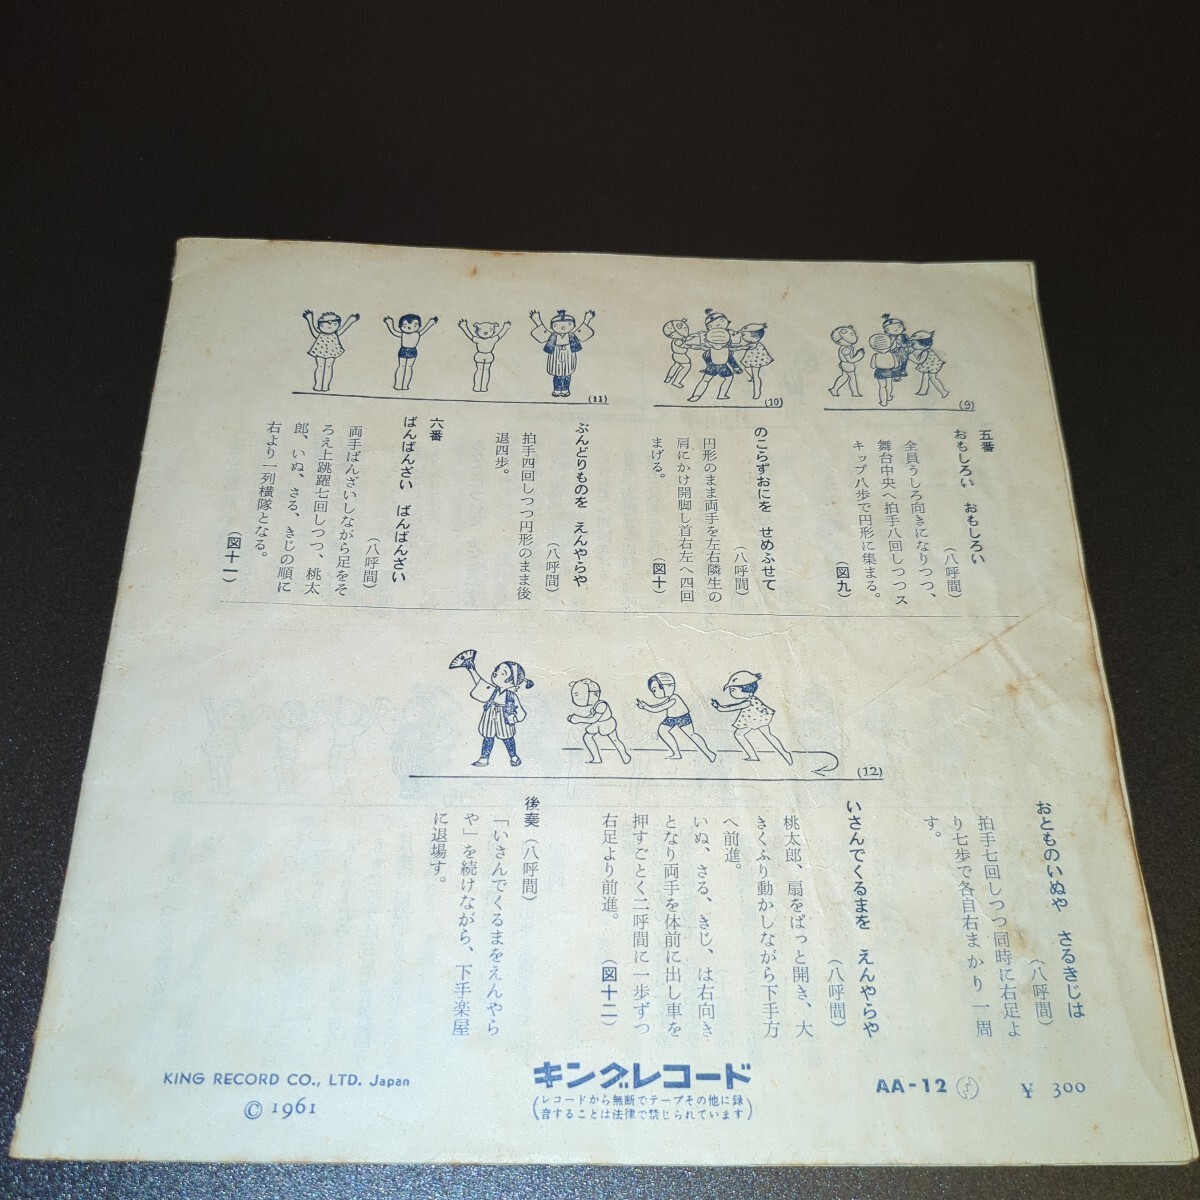 (9)
(10)
(11)
五番
おもしろい　おもしろい
（八呼間）
全員うしろ向きになりつつ、
舞台中央へ拍手八回しつつス
キップ八歩で円形に集まる。
（図九）
のこらずおにを　せめふせて
（八呼間）
円形のまま両手を左右隣生の
肩にかけ開脚し首右左へ四回
まげる。
（図十）
ぶんどりものを　えんやらや
（八呼間）
拍手四回しつつ円形のまま後
退四歩。
六番
ばんばんざい　ばんばんざい
（八呼間）
両手ばんざいしながら足をそ
ろえ上跳躍七回しつつ、桃太
郎、いぬ、さる、きじの順に
右より一列横隊となる。
（図十一）
(12)
おとものいぬや　さるきじは
（八呼間）
拍手七回しつつ同時に右足よ
り七歩で各自右まかり一周
す。
いさんでくるまを　えんやらや
（八呼間）
桃太郎、扇をぱっと開き、大
きくふり動かしながら下手方
へ前進。
いぬ、さる、きじ、は右向き
となり両手を体前に出し車を
押すごとく二呼間に一歩ずつ
右足より前進。
（図十二）
後奏（八呼間）
「いさんでくるまをえんやら
や」を続けながら、下手楽屋
に退場す。
KING RECORD CO., LTD. Japan
© 1961
キングレコード
（レコードから無断でテープその他に録
音することは法律で禁じられています）
AA-12 ♪
¥ 300